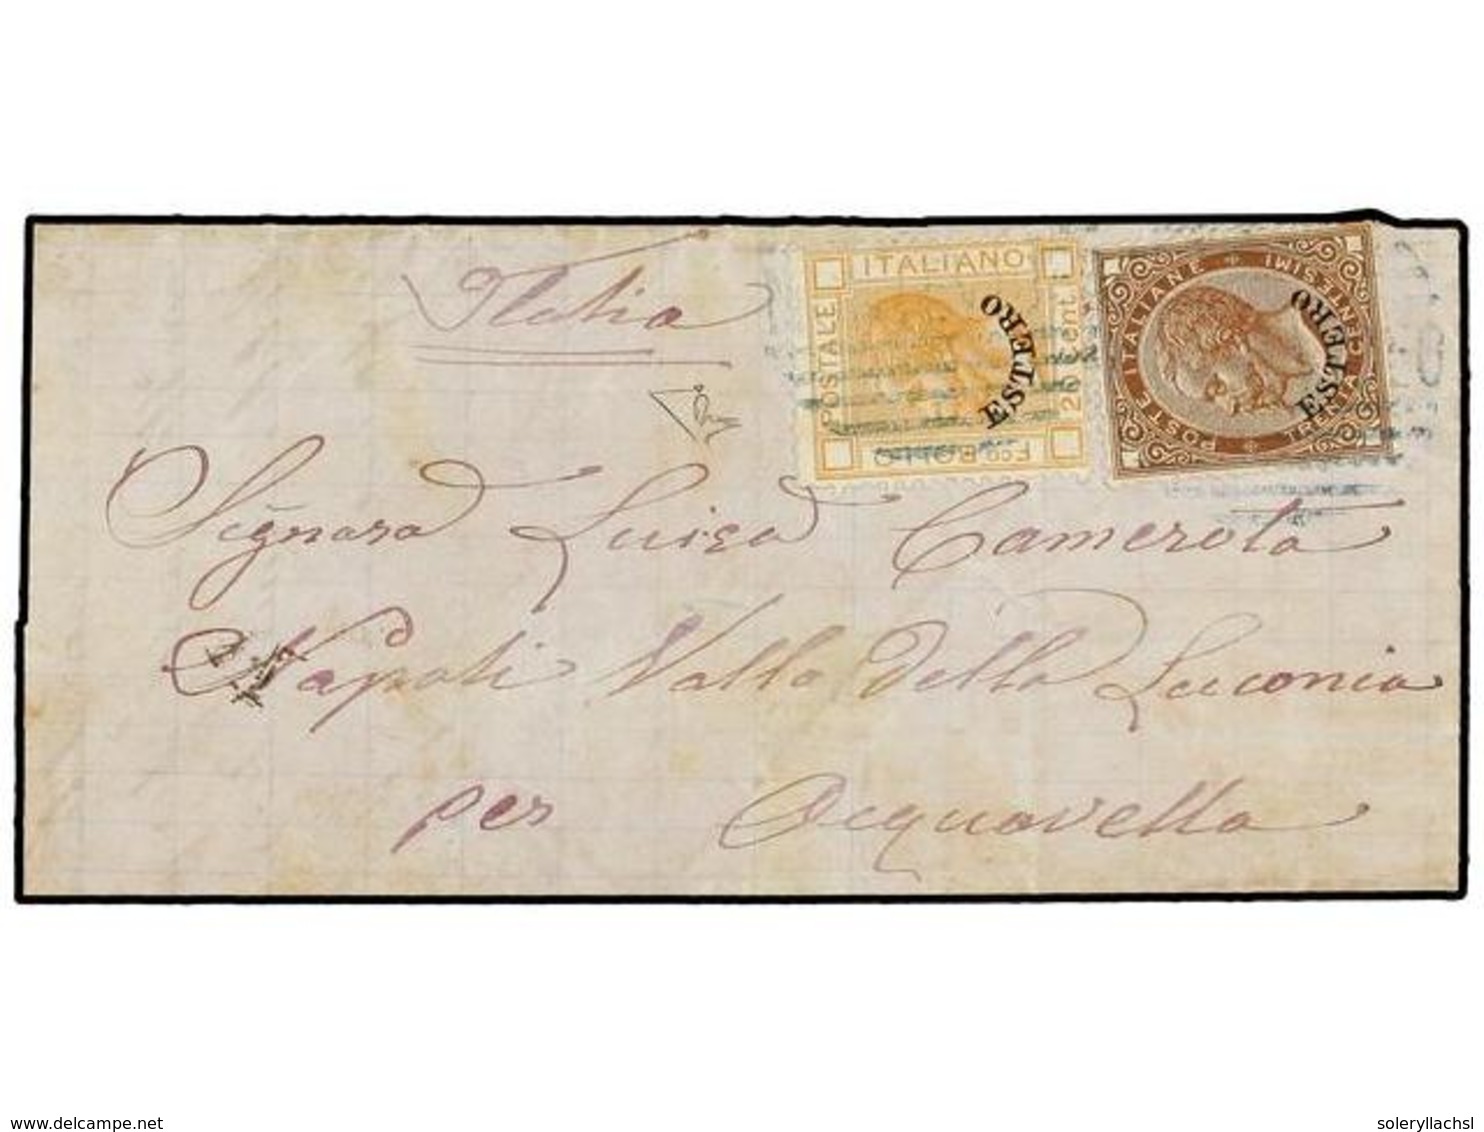 Italia
ITALIANO
POSTALE
ESTERO
20 cent
F.co BOLLO
POSTE ITALIANE
TRENTA CENTESIMI
ESTERO
Signora Luisa Camerota
Napoli Vallo della Luconia
per Acquavella
www.delcampe.net
soleryllachsl